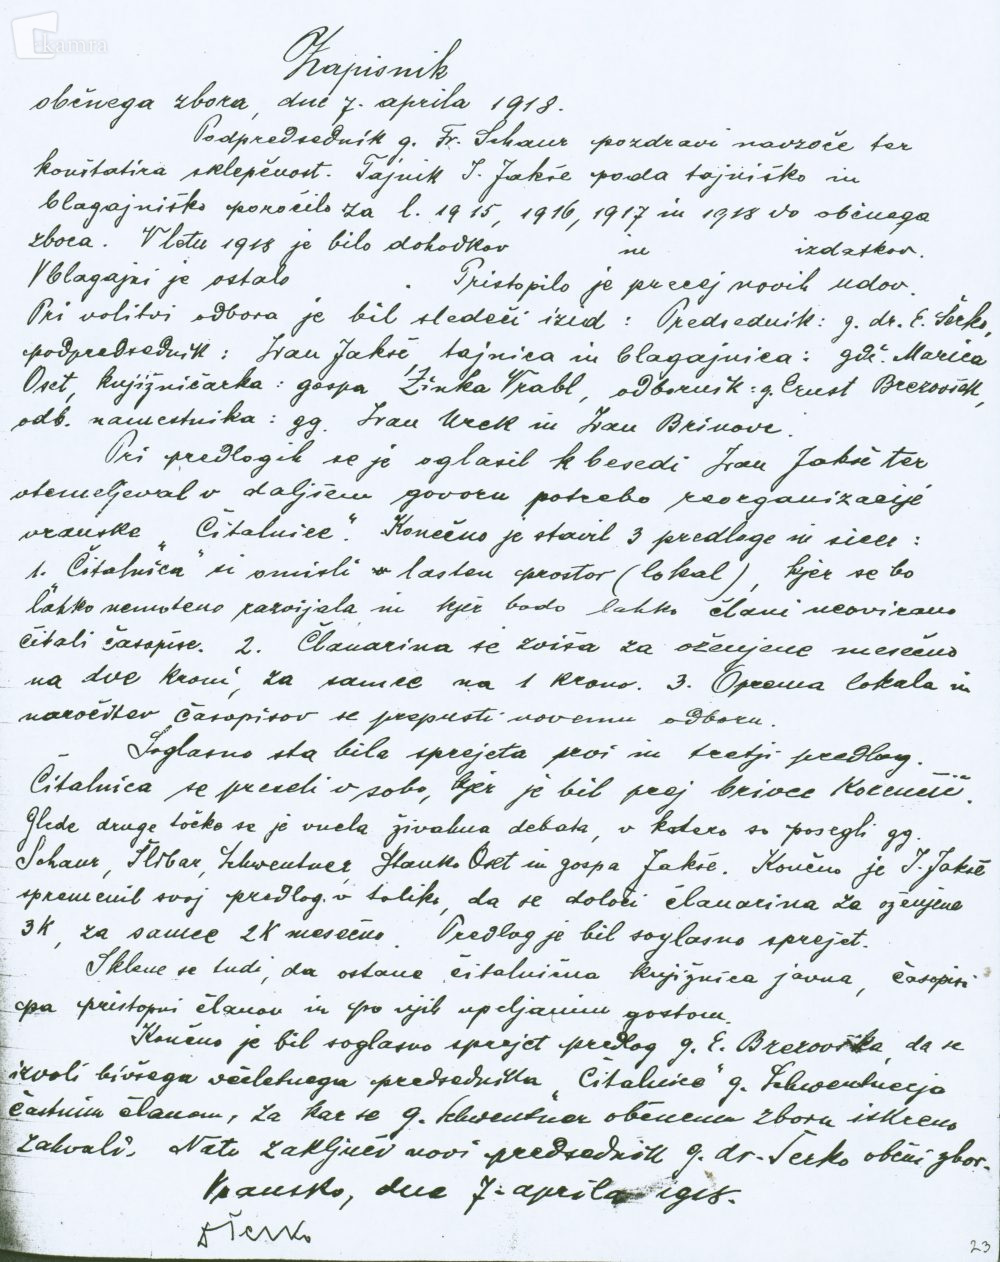 kamra
Zapisnik
občnega zbora, dne 7. aprila 1918.
Podpredsednik g. Fr. Schaur pozdravi navzoče ter
konštatira sklepčnost. Tajnik I. Jakše poda tajniško in
blagajniško poročilo za l. 1915, 1916, 1917 in 1918 do občnega
zbora. V letu 1918 je bilo dohodkov in izdatkov.
V blagajni je ostalo . Pristopilo je precej novih udov.
Pri volitvi odbora je bil sledeči izid: Predsednik: g. dr. E. Šerko,
podpredsednik: Ivan Jakše, tajnica in blagajnica: gdč. Marica
Oset, knjižničarka: gospa Zinka Vrabl, odbornik: g. Ernst Brezovšek,
odb. namestnika: gg. Ivan Urek in Ivan Brinovc.
Pri predlogih se je oglasil k besedi Ivan Jakše ter
utemeljeval v daljšem govoru potrebo reorganizacije
vranske „Čitalnice“. Končno je stavil 3 predloge in sicer:
1. „Čitalnica“ si omisli lasten prostor (lokal), kjer se bo
lahko nemoteno razvijala in kjer bodo lahko člani neovirano
čitali časopise. 2. Članarina se zviša za oženjene mesečno
na dve kroni, za samce na 1 krono. 3. Oprema lokala in
naročitev časopisov se prepusti novemu odboru.
Soglasno sta bila sprejeta prvi in tretji predlog.
Čitalnica se preseli v sobo, kjer je bil prej brivec Korenčič.
Glede druge točke se je vnela živahna debata, v katero so posegli gg.
Schaur, Šlibar, Schwentner, Stanko Oset in gospa Jakše. Končno je I. Jakše
spremenil svoj predlog v toliko, da se določi članarina za oženjene
3K, za samce 2K mesečno. Predlog je bil soglasno sprejet.
Sklene se tudi, da ostane čitalnična knjižnica javna, časopisi
pa pristopni članom in po njih vpeljanim gostom.
Končno je bil soglasno sprejet predlog g. E. Brezovška, da se
izvoli bivšega večletnega predsednika „Čitalnice“ g. Schwentnerja
častnim članom, za kar se g. Schwentner občnemu zboru iskreno
zahvali. Nato zaključi novi predsednik g. dr. Šerko občni zbor.
Vransko, dne 7. aprila 1918.
Šerko
23